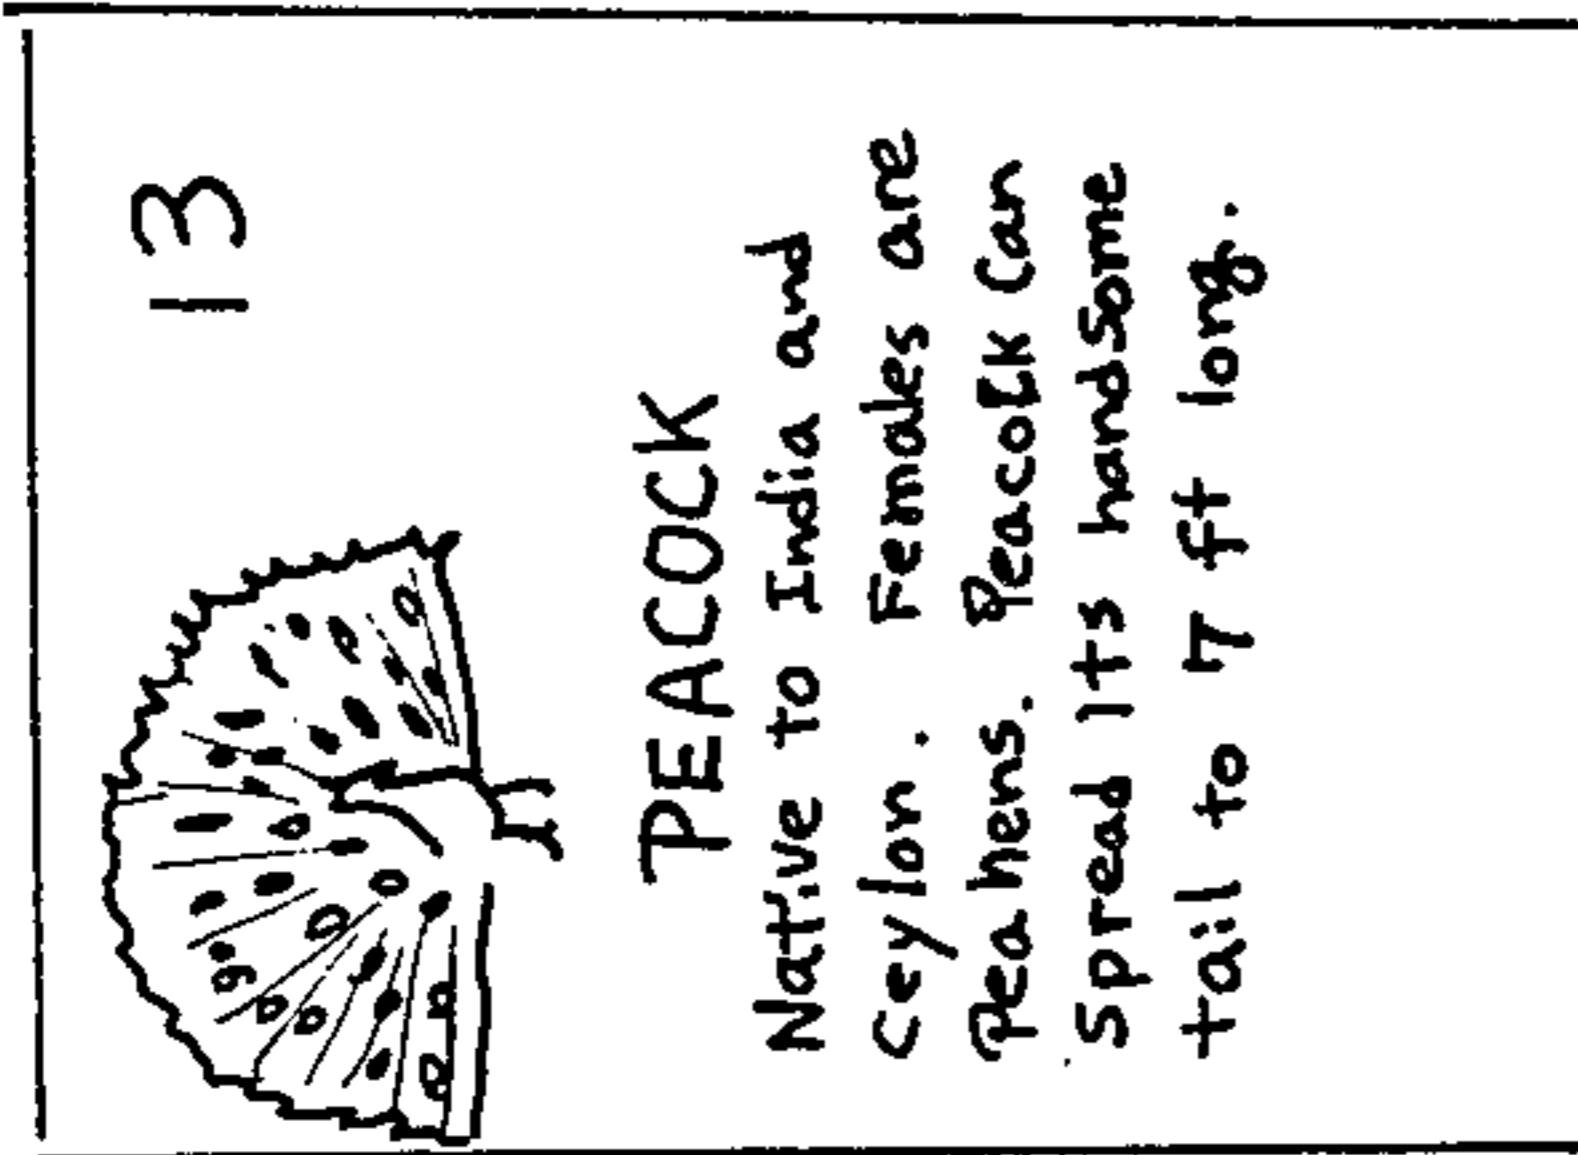 13
PEACOCK
Native to India and
Ceylon. Females are
Peahens. Peacock Can
Spread Its handsome
tail to 7 ft long.